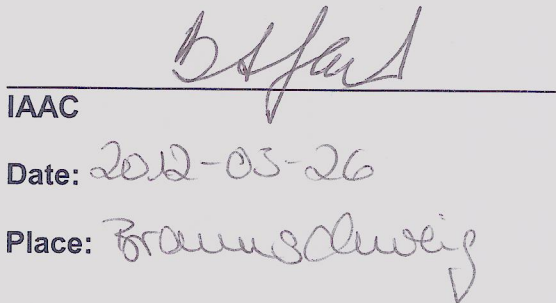 IAAC
Date: 2012-03-26
Place: Braunschweig